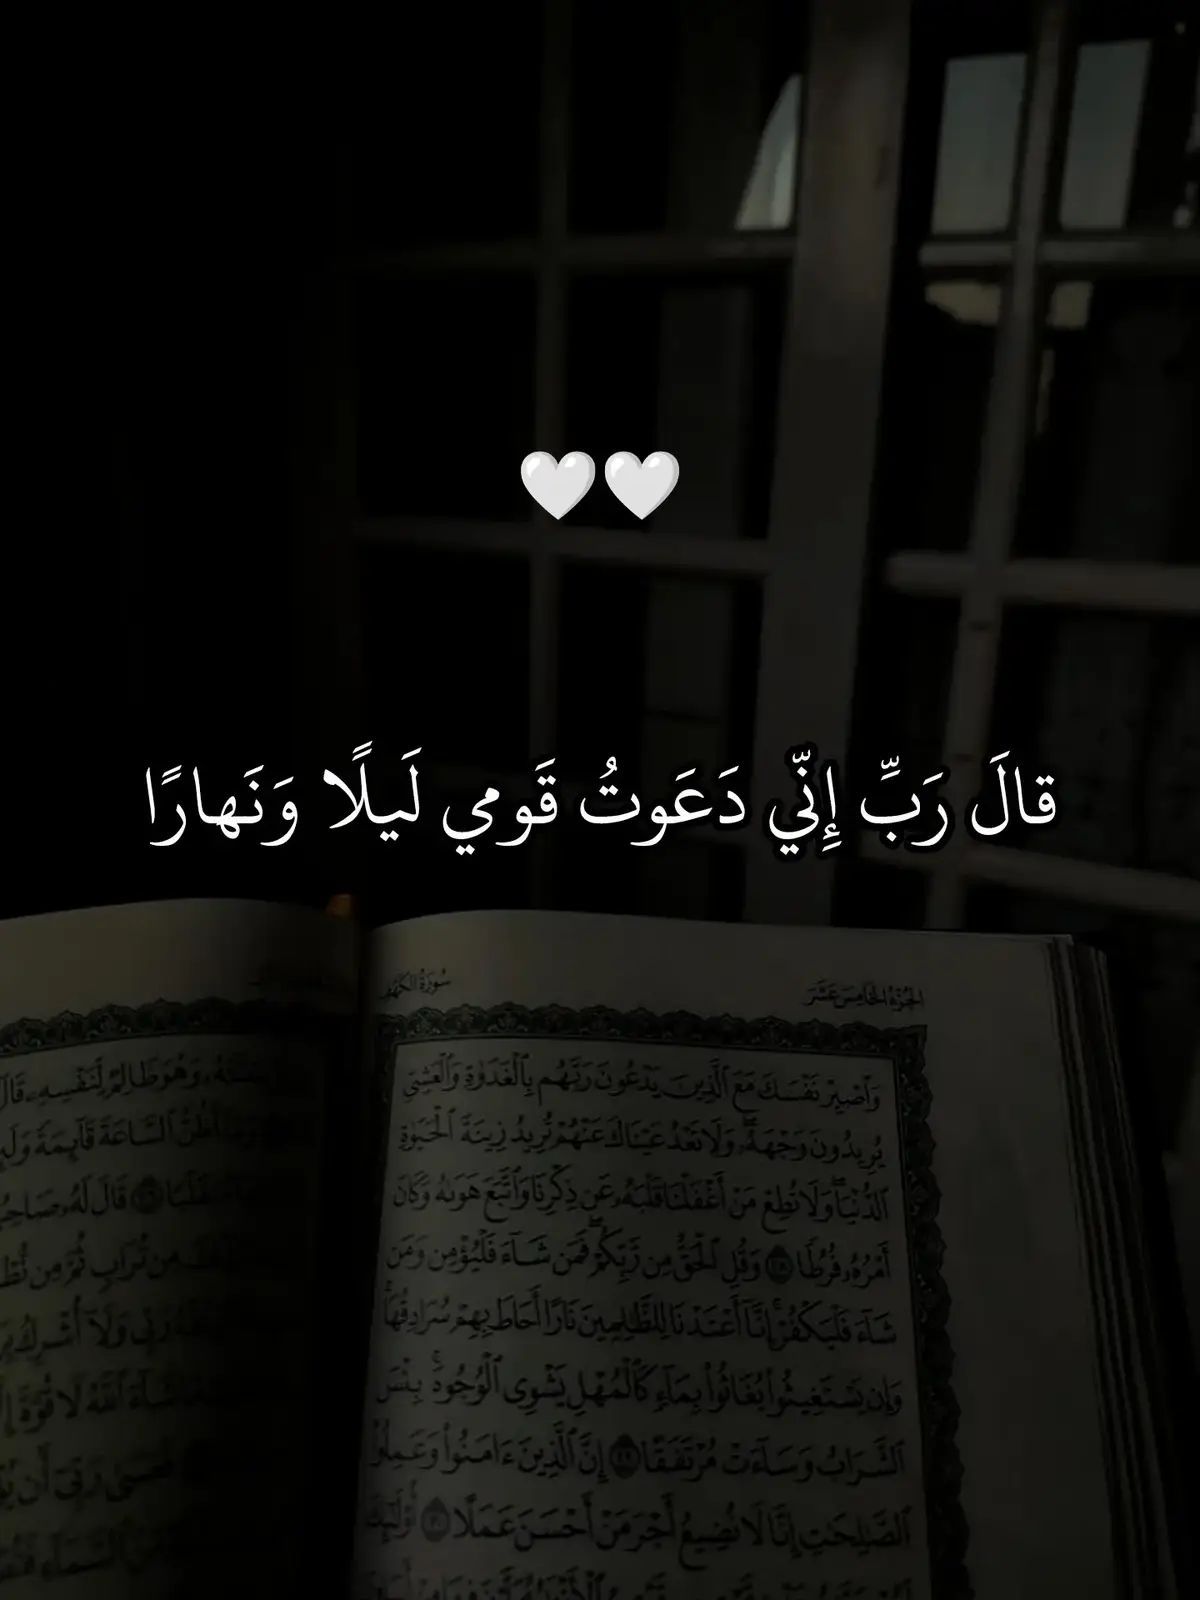 🤍🤍
قالَ رَبِّ إِنّي دَعَوتُ قَومي لَيلًا وَنَهارًا
سُورَةُ الكَهْفِ
الجُزْءُ الخَامِسَ عَشَرَ
وَٱصْبِرْ نَفْسَكَ مَعَ ٱلَّذِينَ يَدْعُونَ رَبَّهُم بِٱلْغَدَوٰةِ وَٱلْعَشِىِّ
يُرِيدُونَ وَجْهَهُۥۖ وَلَا تَعْدُ عَيْنَاكَ عَنْهُمْ تُرِيدُ زِينَةَ ٱلْحَيَوٰةِ
ٱلدُّنْيَاۖ وَلَا تُطِعْ مَنْ أَغْفَلْنَا قَلْبَهُۥ عَن ذِكْرِنَا وَٱتَّبَعَ هَوَىٰهُ وَكَانَ
أَمْرُهُۥ فُرُطًا ٢٨ وَقُلِ ٱلْحَقُّ مِن رَّبِّكُمْۖ فَمَن شَآءَ فَلْيُؤْمِن وَمَن
شَآءَ فَلْيَكْفُرْۚ إِنَّآ أَعْتَدْنَا لِلظَّٰلِمِينَ نَارًا أَحَاطَ بِهِمْ سُرَادِقُهَاۚ
وَإِن يَسْتَغِيثُوا۟ يُغَاثُوا۟ بِمَآءٍ كَٱلْمُهْلِ يَشْوِى ٱلْوُجُوهَۚ بِئْسَ
ٱلشَّرَابُ وَسَآءَتْ مُرْتَفَقًا ٢٩ إِنَّ ٱلَّذِينَ ءَامَنُوا۟ وَعَمِلُوا۟
ٱلصَّٰلِحَٰتِ إِنَّا لَا نُضِيعُ أَجْرَ مَنْ أَحْسَنَ عَمَلًا ٣٠ أُو۟لَٰٓئِكَ
وَهُوَ ظَالِمٌ لِّنَفْسِهِۦ قَالَ
أَظُنُّ ٱلسَّاعَةَ قَآئِمَةً
قَالَ لَهُۥ
مِن تُرَابٍ ثُمَّ مِن
وَلَآ أُشْرِكُ
شَآءَ ٱللَّهُ لَا قُوَّةَ
رَبِّىٓ أَن